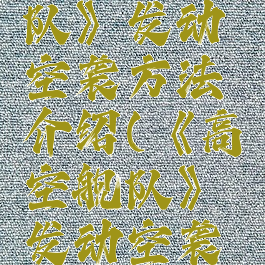 队》发动
空袭方法
介绍(《高
空舰队》
发动空袭